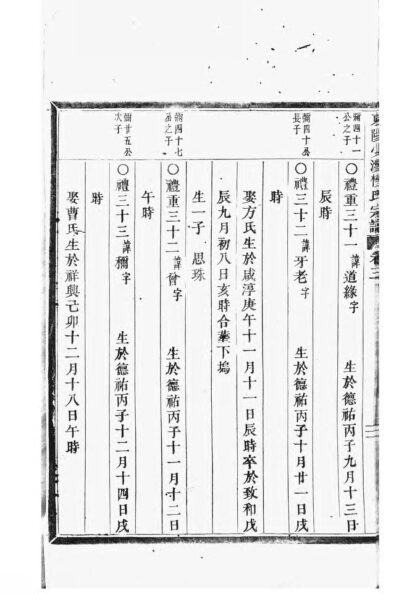 東陽
氏宗譜
卷三
彌四十一公之子
○禮重三十一 諱道緣 字 生於德祐丙子九月十三日
辰時
彌四十公長子
○禮三十二 諱牙老 字 生於德祐丙子十月廿一日戌
時
娶方氏生於咸淳庚午十一月十一日辰時卒於致和戊
辰九月初八日亥時合葬下塢
生一子 思珠
彌四十七公之子
○禮重三十二 諱曾 字 生於德祐丙子十一月十二日
午時
彌廿五公次子
○禮三十三 諱彌 字 生於德祐丙子十二月十四日戌
時
娶曹氏生於祥興己卯十二月十八日午時